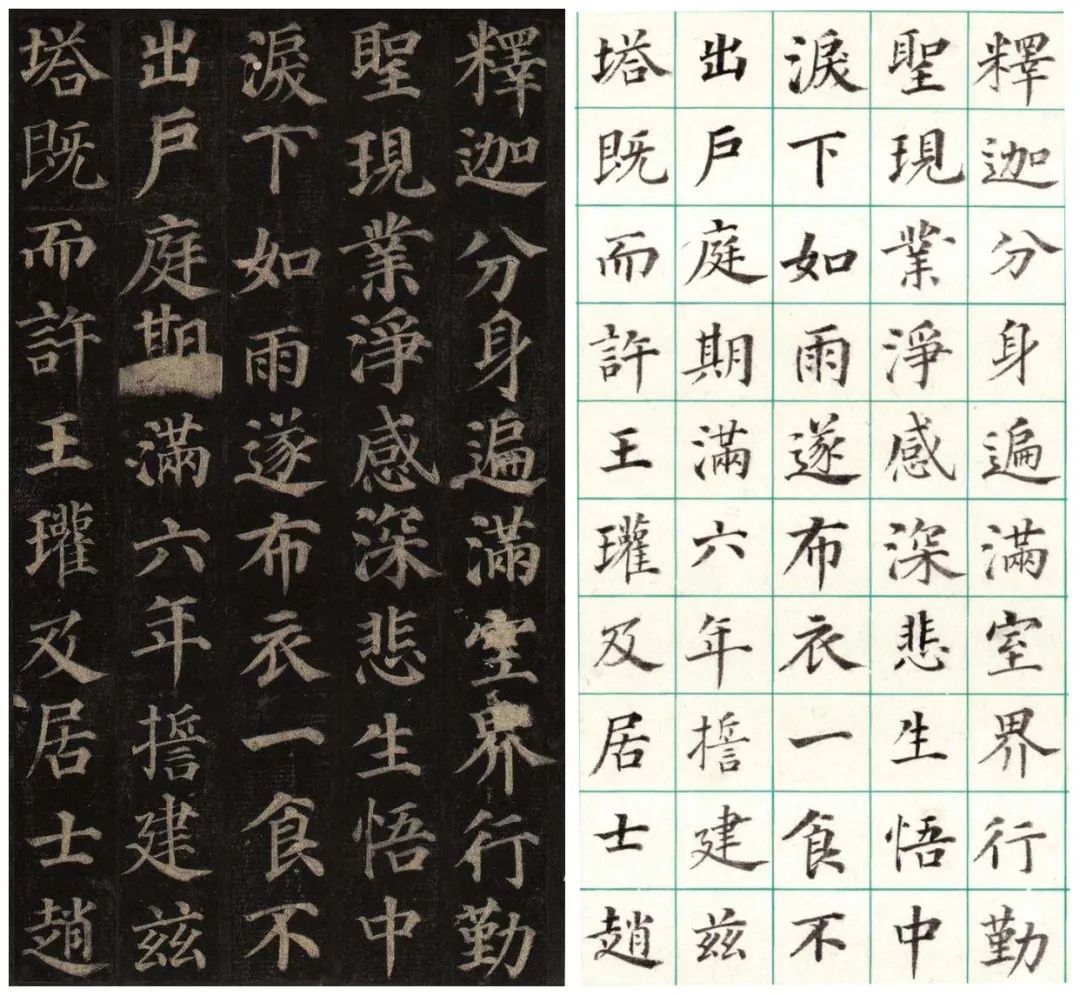 釋迦分身遍滿室界行勤
聖現業淨感深悲生悟中
淚下如雨遂布衣一食不
出戶庭期滿六年誓建茲
塔既而許王瓘及居士趙
釋迦分身遍滿室界行勤
聖現業淨感深悲生悟中
淚下如雨遂布衣一食不
出戶庭期滿六年誓建茲
塔既而許王瓘及居士趙